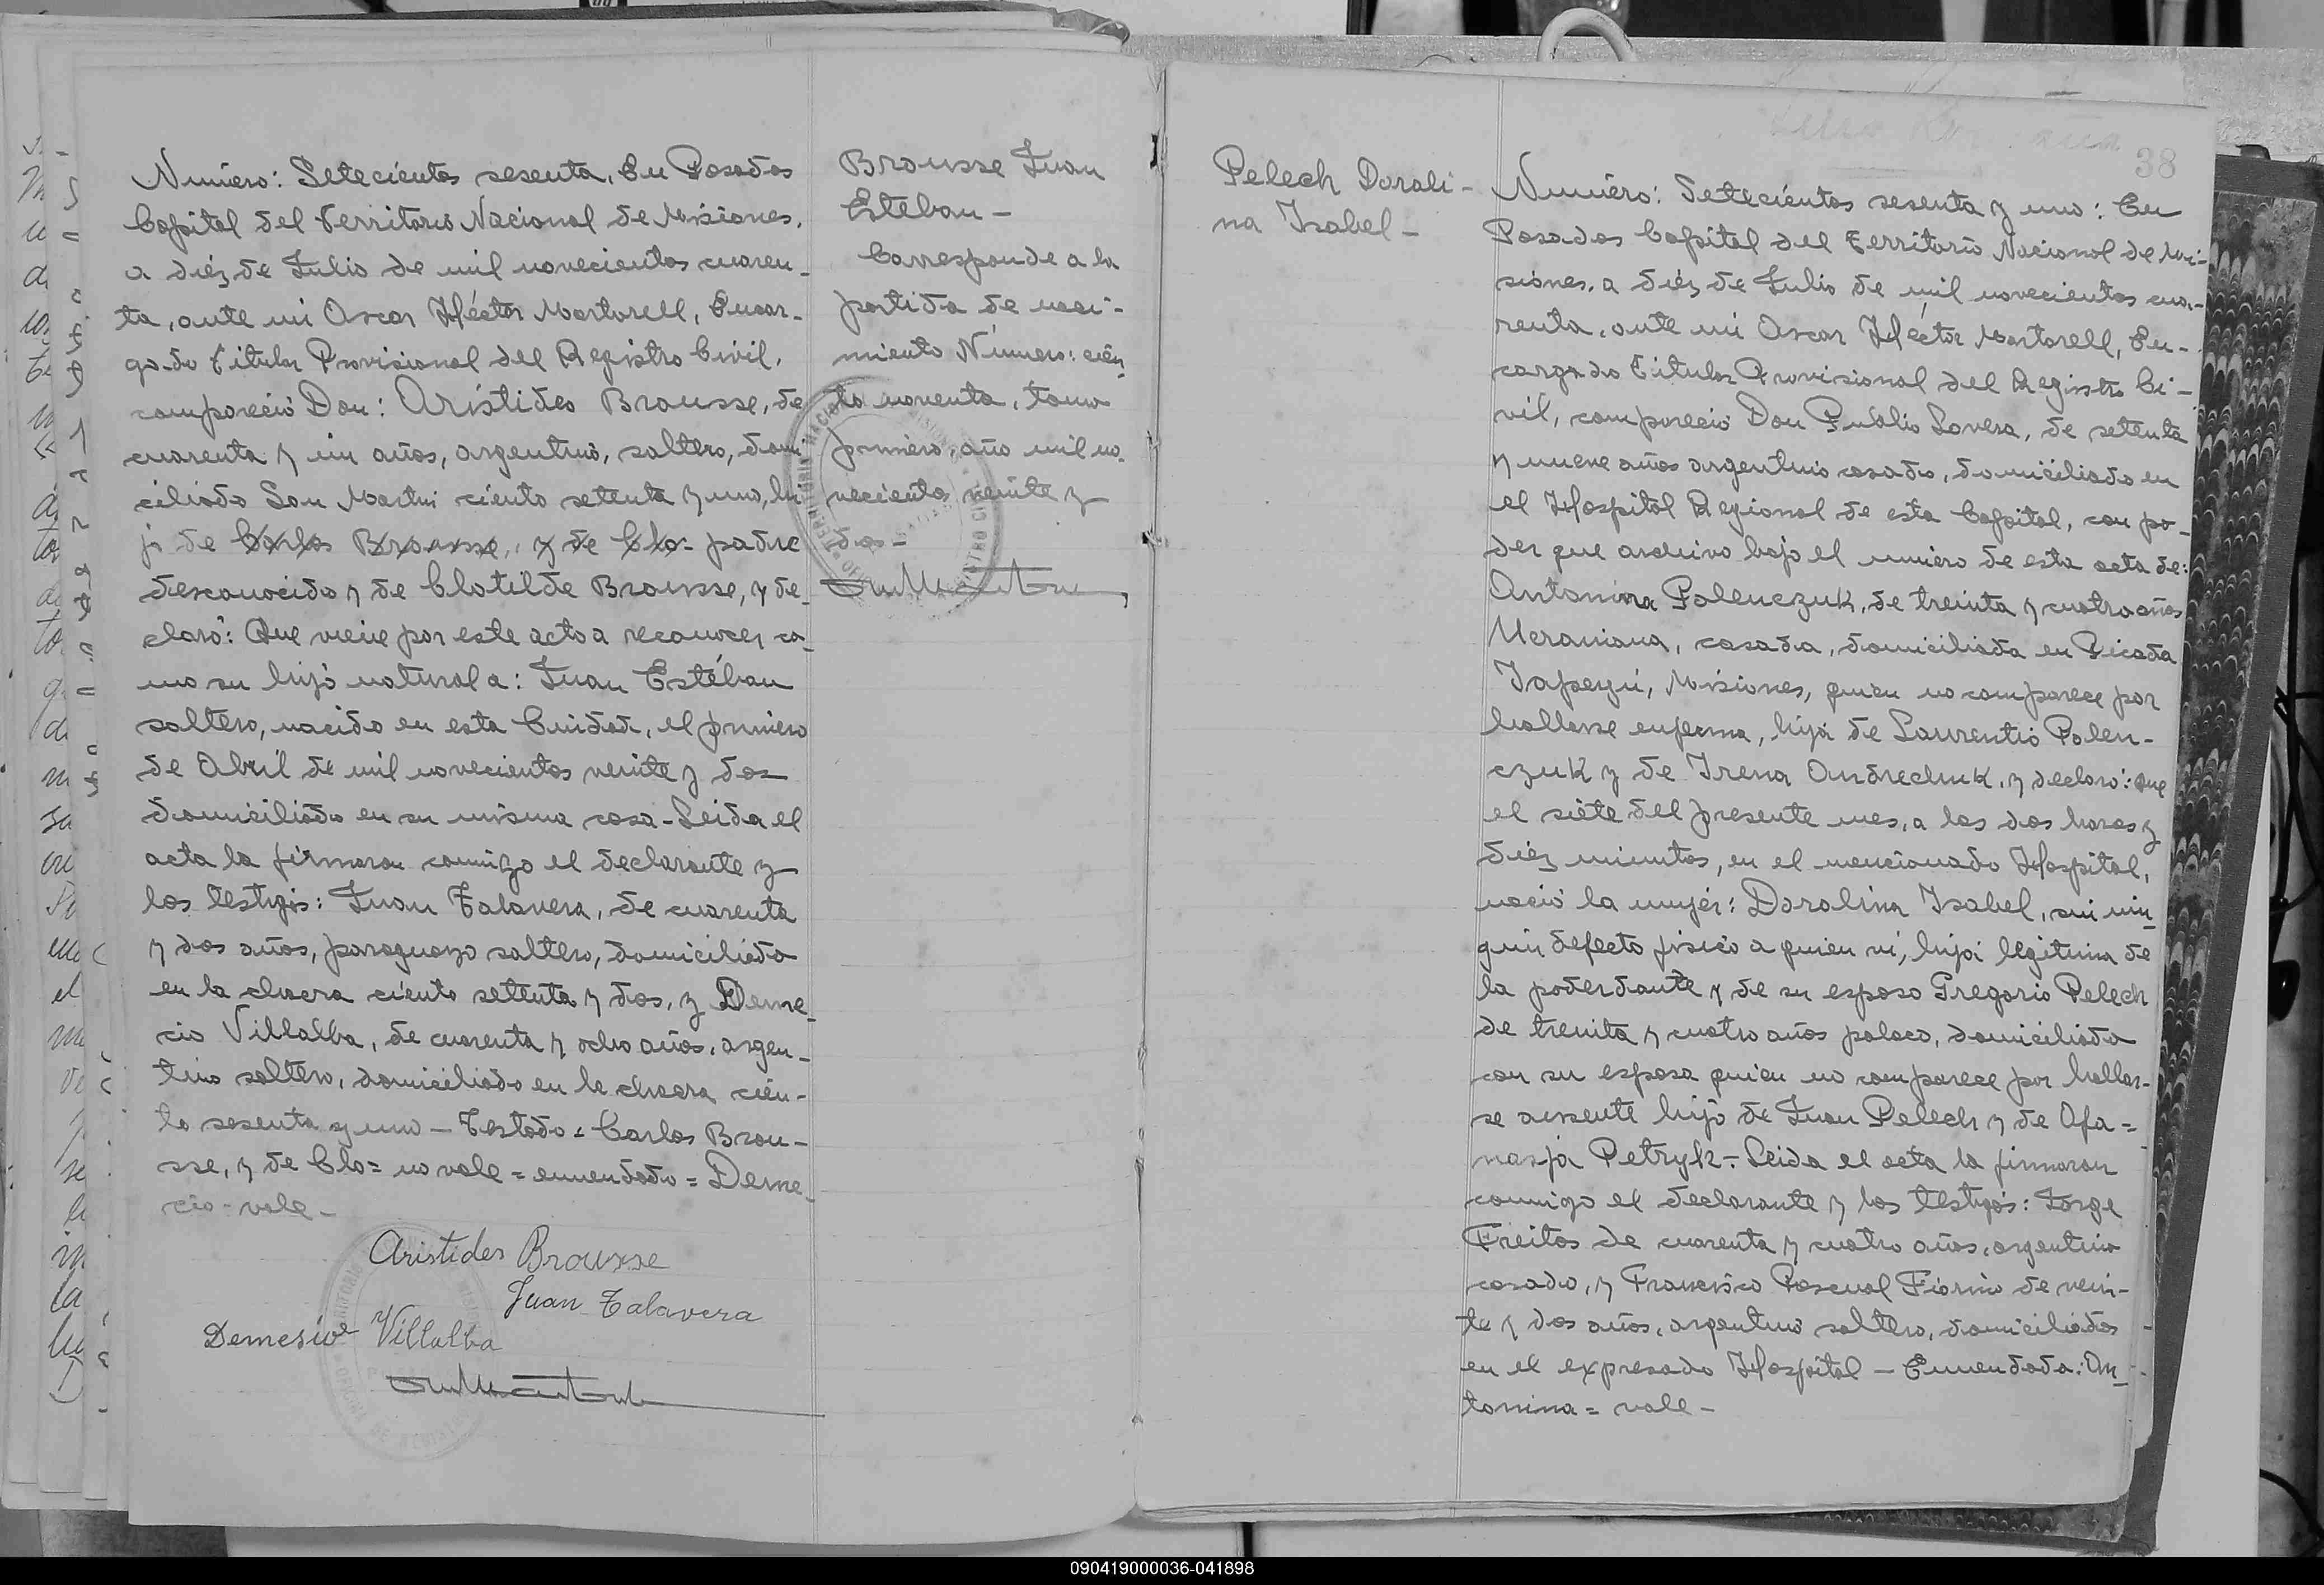 Número: Setecientos sesenta, En Posadas
Capital del Territorio Nacional de Misiones,
a diéz de Julio de mil novecientos cuaren-
ta, ante mi Oscar Héctor Martorell, Encar-
gado Titular Provisional del Registro Civil,
compareció Don: Arístides Brousse, de
cuarenta y un años, argentino, soltero, domi
ciliado San Martin ciento setenta y uno, hi
jo de Carlos Brousse, y de Clo- padre
desconocido y de Clotilde Brousse, y de-
claró: Que viene por este acto a reconocer co-
mo su hijo natural a: Juan Estéban
soltero, nacido en esta Cuidad, el primero
de Abril de mil novecientos veinte y dos
domiciliado en su misma casa - Leida el
acta la firmaron conmigo el declarante y
los testigos: Juan Talavera, de cuarenta
y dos años, paraguayo soltero, domiciliado
en la chacra ciento setenta y dos, y Deme-
cio Villalba, de cuarenta y ocho años, argen-
tino soltero, domiciliado en la chacra cien-
to sesenta y uno - Testado = Carlos Brou-
sse, y de Clo = no vale = enmendado = Deme-
cio - vale -
Aristides Brousse
Juan Talavera
Demesio Villalba
Brousse Juan
Esteban -
Corresponde a la
partida de naci-
miento Número: cien
to noventa, tomo
primero, año mil no-
vecientos veinte y
dos -
38
Pelech Dorali-
na Isabel -
Número: Setecientos sesenta y uno: En
Posadas Capital del Territorio Nacional de Mi-
siones, a diéz de Julio de mil novecientos cua-
renta, ante mi Oscar Héctor Martorell, En-
cargado Titular Provisional del Registro Ci-
vil, compareció Don Publio Lovera, de setenta
y nueve años argentino casado, domiciliado en
el Hospital Regional de esta Capital, con po-
der que archivo bajo el número de esta acta de:
Antonina Polenczuk, de treinta y cuatro años
Ucraniana, casada, domiciliada en Picada
Yapeyú, Misiones, quien no comparece por
hallarse enferma, hija de Laurentio Polen-
czuk y de Irena Andrechuk, y declaró: Que
el siete del presente mes, a las dos horas y
diéz minutos, en el mencionado Hospital,
nació la mujer: Doralina Isabel, sin nin
gún defecto fisico a quien vi, hija legitima de
la poderdante y de su esposo Gregorio Pelech
de treinta y cuatro años polaco, domiciliado
con su esposa quien no comparece por hallar-
se ausente hijo de Juan Pelech y de Afa=
nasja Petryk - Leida el acta la firmaron
conmigo el declarante y los testigos: Jorge
Freitas de cuarenta y cuatro años, argentino
casado, y Francisco Pascual Fiorino de vein-
te y dos años, argentino soltero, domiciliados
en el expresado Hospital - Enmendada: An-
tonina = vale -
090419000036-041898